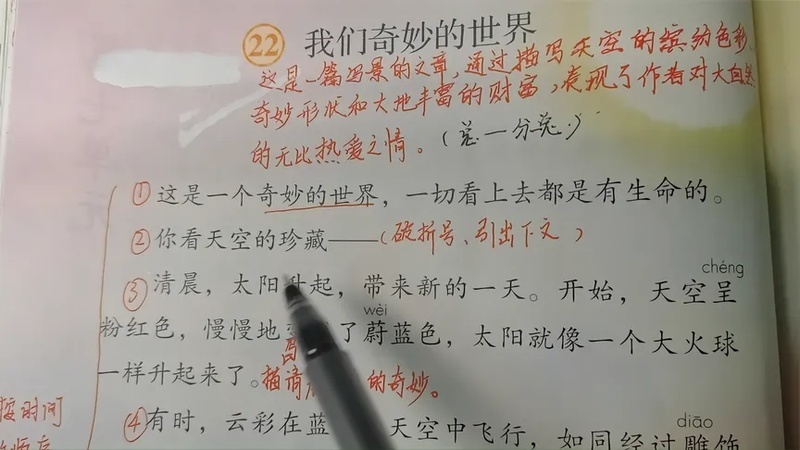 22 我们奇妙的世界
这是一篇写景的文章,通过描写天空的缤纷色彩、
奇妙形状和大地丰富的财富,表现了作者对大自然
的无比热爱之情。(总—分总)
①这是一个奇妙的世界,一切看上去都是有生命的。
②你看天空的珍藏——(破折号、引出下文)
chéng
③清晨,太阳升起,带来新的一天。开始,天空呈
wèi
粉红色,慢慢地变 了蔚蓝色,太阳就像一个大火球
一样升起来了。描 清 的奇妙。
按时间
diāo
④有时,云彩在蓝 天空中飞行,如同经过雕饰